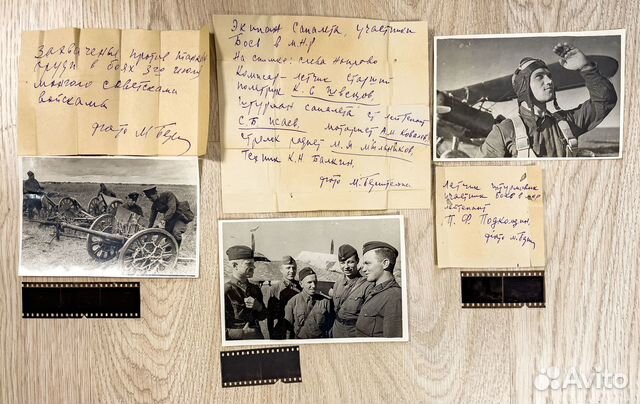 Захвачены против танков
орудия в боях 3го июля
монголо советскими
войсками
фото М.
Экипаж самолета, участники
боев в МНР
На снимке: слева направо
Комиссар – летчик старший
политрук К. Б Швецов,
штурман самолета ст лейтенант
С. Б Исаев, моторист А.М. Ковалев,
стрелок радист М. Я Мыльников,
Техник К. Н Балкин,
фото М. Бернштейна
Летчик штурмовик
участник боев в МНР
лейтенант
П. Ф. Подкощин,
фото М.
Avito